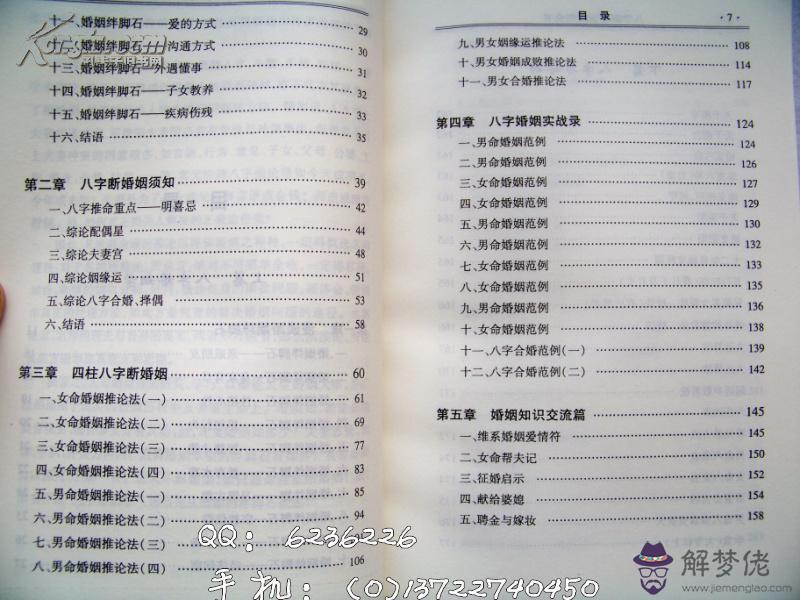 十一、婚姻绊脚石——爱的方式 29
十二、婚姻绊脚石——沟通方式 30
十三、婚姻绊脚石—外遇懂事 31
十四、婚姻绊脚石——子女教养 32
十五、婚姻绊脚石——疾病伤残 33
十六、结语 35
第二章 八字断婚姻须知 39
一、八字推命重点—明喜忌 42
二、综论配偶星 44
三、综论夫妻宫 48
四、综论姻缘运 51
五、综论八字合婚、择偶 53
六、结语 58
第三章 四柱八字断婚姻 60
一、女命婚姻推论法(一) 61
二、女命婚姻推论法(二) 69
三、女命婚姻推论法(三) 77
四、女命婚姻推论法(四) 83
五、男命婚姻推论法(一) 85
六、男命婚姻推论法(二) 94
七、男命婚姻推论法(三)
八、男命婚姻推论法(四) 106
目录 ·7·
九、男女姻缘运推论法 108
十、男女婚姻成败推论法 114
十一、男女合婚推论法 117
第四章 八字婚姻实战录 124
一、男命婚姻范例 124
二、男命婚姻范例 126
三、女命婚姻范例 127
四、女命婚姻范例 129
五、男命婚姻范例 130
六、男命婚姻范例 132
七、女命婚姻范例 133
八、女命婚姻范例 135
九、男命婚姻范例 136
十、女命婚姻范例 138
十一、八字合婚范例(一) 139
十二、八字合婚范例(二) 142
第五章 婚姻知识交流篇 145
一、维系婚姻爱情符 145
二、女命帮夫记 150
三、征婚启示 152
四、献给婆媳 154
五、聘金与嫁妆 158
QQ: 6236226
手机: (0)13722740450
解梦佬
www.jiemenglao.com